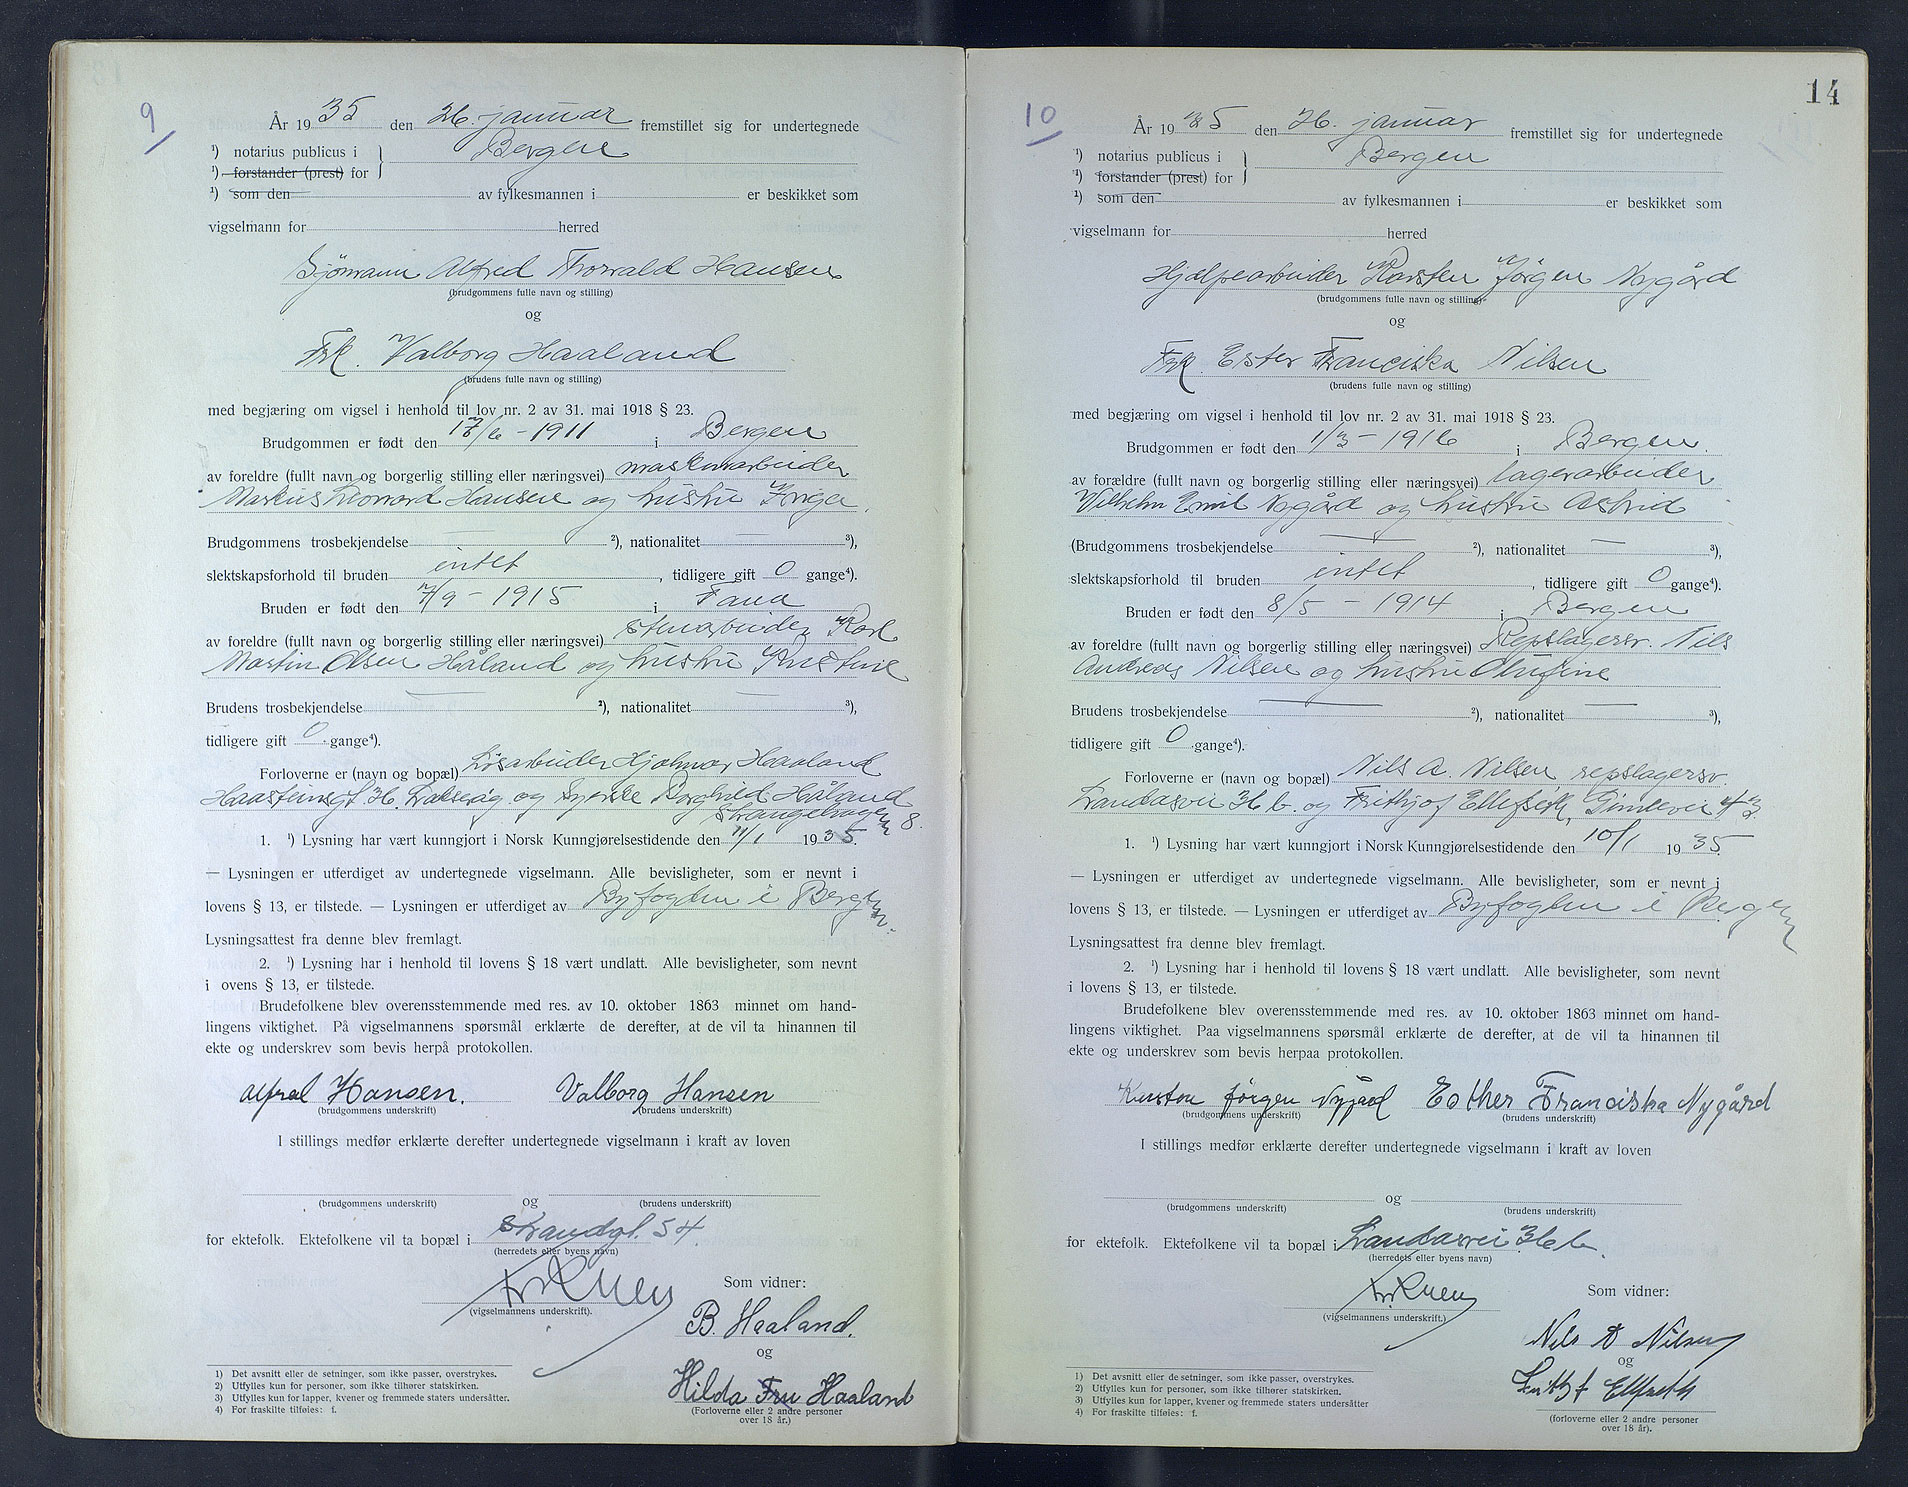 9
År 1935 den 26. januar fremstillet sig for undertegnede
¹) notarius publicus i } Bergen
¹) forstander (prest) for
¹) som den av fylkesmannen i er beskikket som
vigselmann for herred
Sjømann Alfred Thorvald Hansen
(brudgommens fulle navn og stilling)
og
Frk. Valborg Haaland
(brudens fulle navn og stilling)
med begjæring om vigsel i henhold til lov nr. 2 av 31. mai 1918 § 23.
Brudgommen er født den /6 - 1911 i Bergen
av foreldre (fullt navn og borgerlig stilling eller næringsvei) maskinarbeider
Markus Leonard Hansen og hustru Inga
Brudgommens trosbekjendelse — ²), nationalitet — ³),
slektskapsforhold til bruden intet, tidligere gift 0 gange⁴).
Bruden er født den 7/9 - 1915 i Fana
av foreldre (fullt navn og borgerlig stilling eller næringsvei) stenarbeider Karl
Martin Olsen Håland og hustru Kristine
Brudens trosbekjendelse — ²), nationalitet — ³),
tidligere gift 0 gange⁴).
Forloverne er (navn og bopæl) Løsarbeider Hjalmar Haaland
Haasteinsgt. Laksevåg og Syerske Borghild Håland
Strangehagen 8.
1. ¹) Lysning har vært kunngjort i Norsk Kunngjørelsestidende den 11/1 1935.
— Lysningen er utferdiget av undertegnede vigselmann. Alle bevisligheter, som er nevnt i
lovens § 13, er tilstede. — Lysningen er utferdiget av Byfogden i Bergen.
Lysningsattest fra denne blev fremlagt.
2. ¹) Lysning har i henhold til lovens § 18 vært undlatt. Alle bevisligheter, som nevnt
i ovens § 13, er tilstede.
Brudefolkene blev overensstemmende med res. av 10. oktober 1863 minnet om hand-
lingens viktighet. På vigselmannens spørsmål erklærte de derefter, at de vil ta hinannen til
ekte og underskrev som bevis herpå protokollen.
Alfred Hansen. Valborg Hansen
(brudgommens underskrift) (brudens underskrift)
I stillings medfør erklærte derefter undertegnede vigselmann i kraft av loven
og
(brudgommens underskrift) (brudens underskrift)
for ektefolk. Ektefolkene vil ta bopæl i Strandgt. 54.
(herredets eller byens navn)
Som vidner:
(vigselmannens underskrift).
B. Haaland.
og
Hilda Fru Haaland
(Forloverne eller 2 andre personer
over 18 år.)
1) Det avsnitt eller de setninger, som ikke passer, overstrykes.
2) Utfylles kun for personer, som ikke tilhører statskirken.
3) Utfylles kun for lapper, kvener og fremmede staters undersåtter.
4) For fraskilte tilføies: f.
14
10
År 1935 den 26. januar fremstillet sig for undertegnede
¹) notarius publicus i } Bergen
¹) forstander (prest) for
¹) som den av fylkesmannen i er beskikket som
vigselmann for herred
Hjelpearbeider Karsten Jørgen Nygård
(brudgommens fulle navn og stilling)
og
Frk. Ester Franciska Nilsen
(brudens fulle navn og stilling)
med begjæring om vigsel i henhold til lov nr. 2 av 31. mai 1918 § 23.
Brudgommen er født den 1/3 - 1916 i Bergen.
av forældre (fullt navn og borgerlig stilling eller næringsvei) lagerarbeider
Vilhelm Emil Nygård og hustru Astrid
(Brudgommens trosbekjendelse — ²), nationalitet — ³),
slektskapsforhold til bruden intet, tidligere gift 0 gange⁴).
Bruden er født den 8/5 - 1914 i Bergen
av foreldre (fullt navn og borgerlig stilling eller næringsvei) Repslagersv. Nils
Andreas Nilsen og hustru Olufine
Brudens trosbekjendelse — ²), nationalitet — ³),
tidligere gift 0 gange⁴).
Forloverne er (navn og bopæl) Nils A. Nilsen repslagersv.
Landåsvei 36 b. og Frithjof Ellefseth, Gimlevei 43
1. ¹) Lysning har vært kunngjort i Norsk Kunngjørelsestidende den 10/1 1935.
— Lysningen er utferdiget av undertegnede vigselmann. Alle bevisligheter, som er nevnt i
lovens § 13, er tilstede. — Lysningen er utferdiget av Byfogden i Bergen
Lysningsattest fra denne blev fremlagt.
2. ¹) Lysning har i henhold til lovens § 18 vært undlatt. Alle bevisligheter, som nevnt
i lovens § 13, er tilstede.
Brudefolkene blev overensstemmende med res. av 10. oktober 1863 minnet om hand-
lingens viktighet. Paa vigselmannens spørsmål erklærte de derefter, at de vil ta hinannen til
ekte og underskrev som bevis herpaa protokollen.
Karsten Jørgen Nygård Esther Franciska Nygård
(brudgommens underskrift) (brudens underskrift)
I stillings medfør erklærte derefter undertegnede vigselmann i kraft av loven
og
(brudgommens underskrift) (brudens underskrift)
for ektefolk. Ektefolkene vil ta bopæl i Landåsvei 36 b.
(herredets eller byens navn)
Som vidner:
(vigselmannens underskrift.)
Nils A Nilsen
og
Frithjof Ellefseth
(forloverne eller 2 andre personer
over 18 år).
1) Det avsnitt eller de setninger, som ikke passer, overstrykes.
2) Utfylles kun for personer, som ikke tilhører statskirken.
3) Utfylles kun for lapper, kvener og fremmede staters undersåtter
4) For fraskilte tilføies: f.